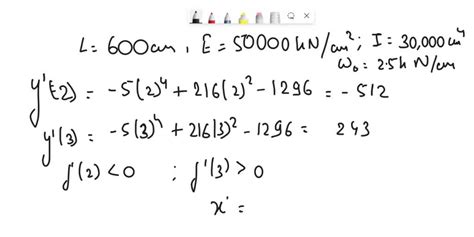 L = 600cm , E = 50000 kN/cm² ; I = 30,000 cm⁴
ω₀ = 2.5 kN/cm
y'(2) = -5(2)⁴ + 216(2)² - 1296 = -512
y'(3) = -5(3)⁴ + 216(3)² - 1296 = 243
f'(2) < 0 ; f'(3) > 0
x' =